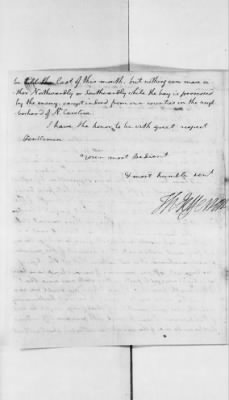 the East of this month. but nothing can move in
ther Northwardly or Southwardly while the bay is possessed
by the enemy, except indeed from our counties in the neigh
borhood of N. Carolina
I have the honor to be with great respect
Gentlemen
Your most obedient
& most humble serv.t
Th: Jefferson